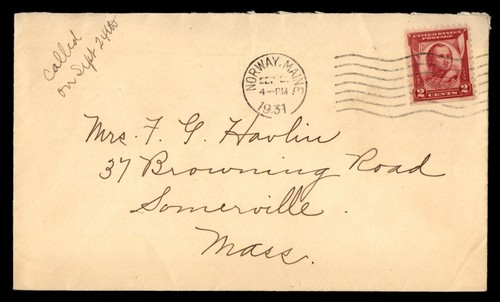 Called
on Sept 24th
NORWAY, MAINE
SEP
4-PM
1931
UNITED STATES
POSTAGE
2 2
CENTS
Mrs. F. G. Havlin
37 Browning Road
Somerville.
Mass.